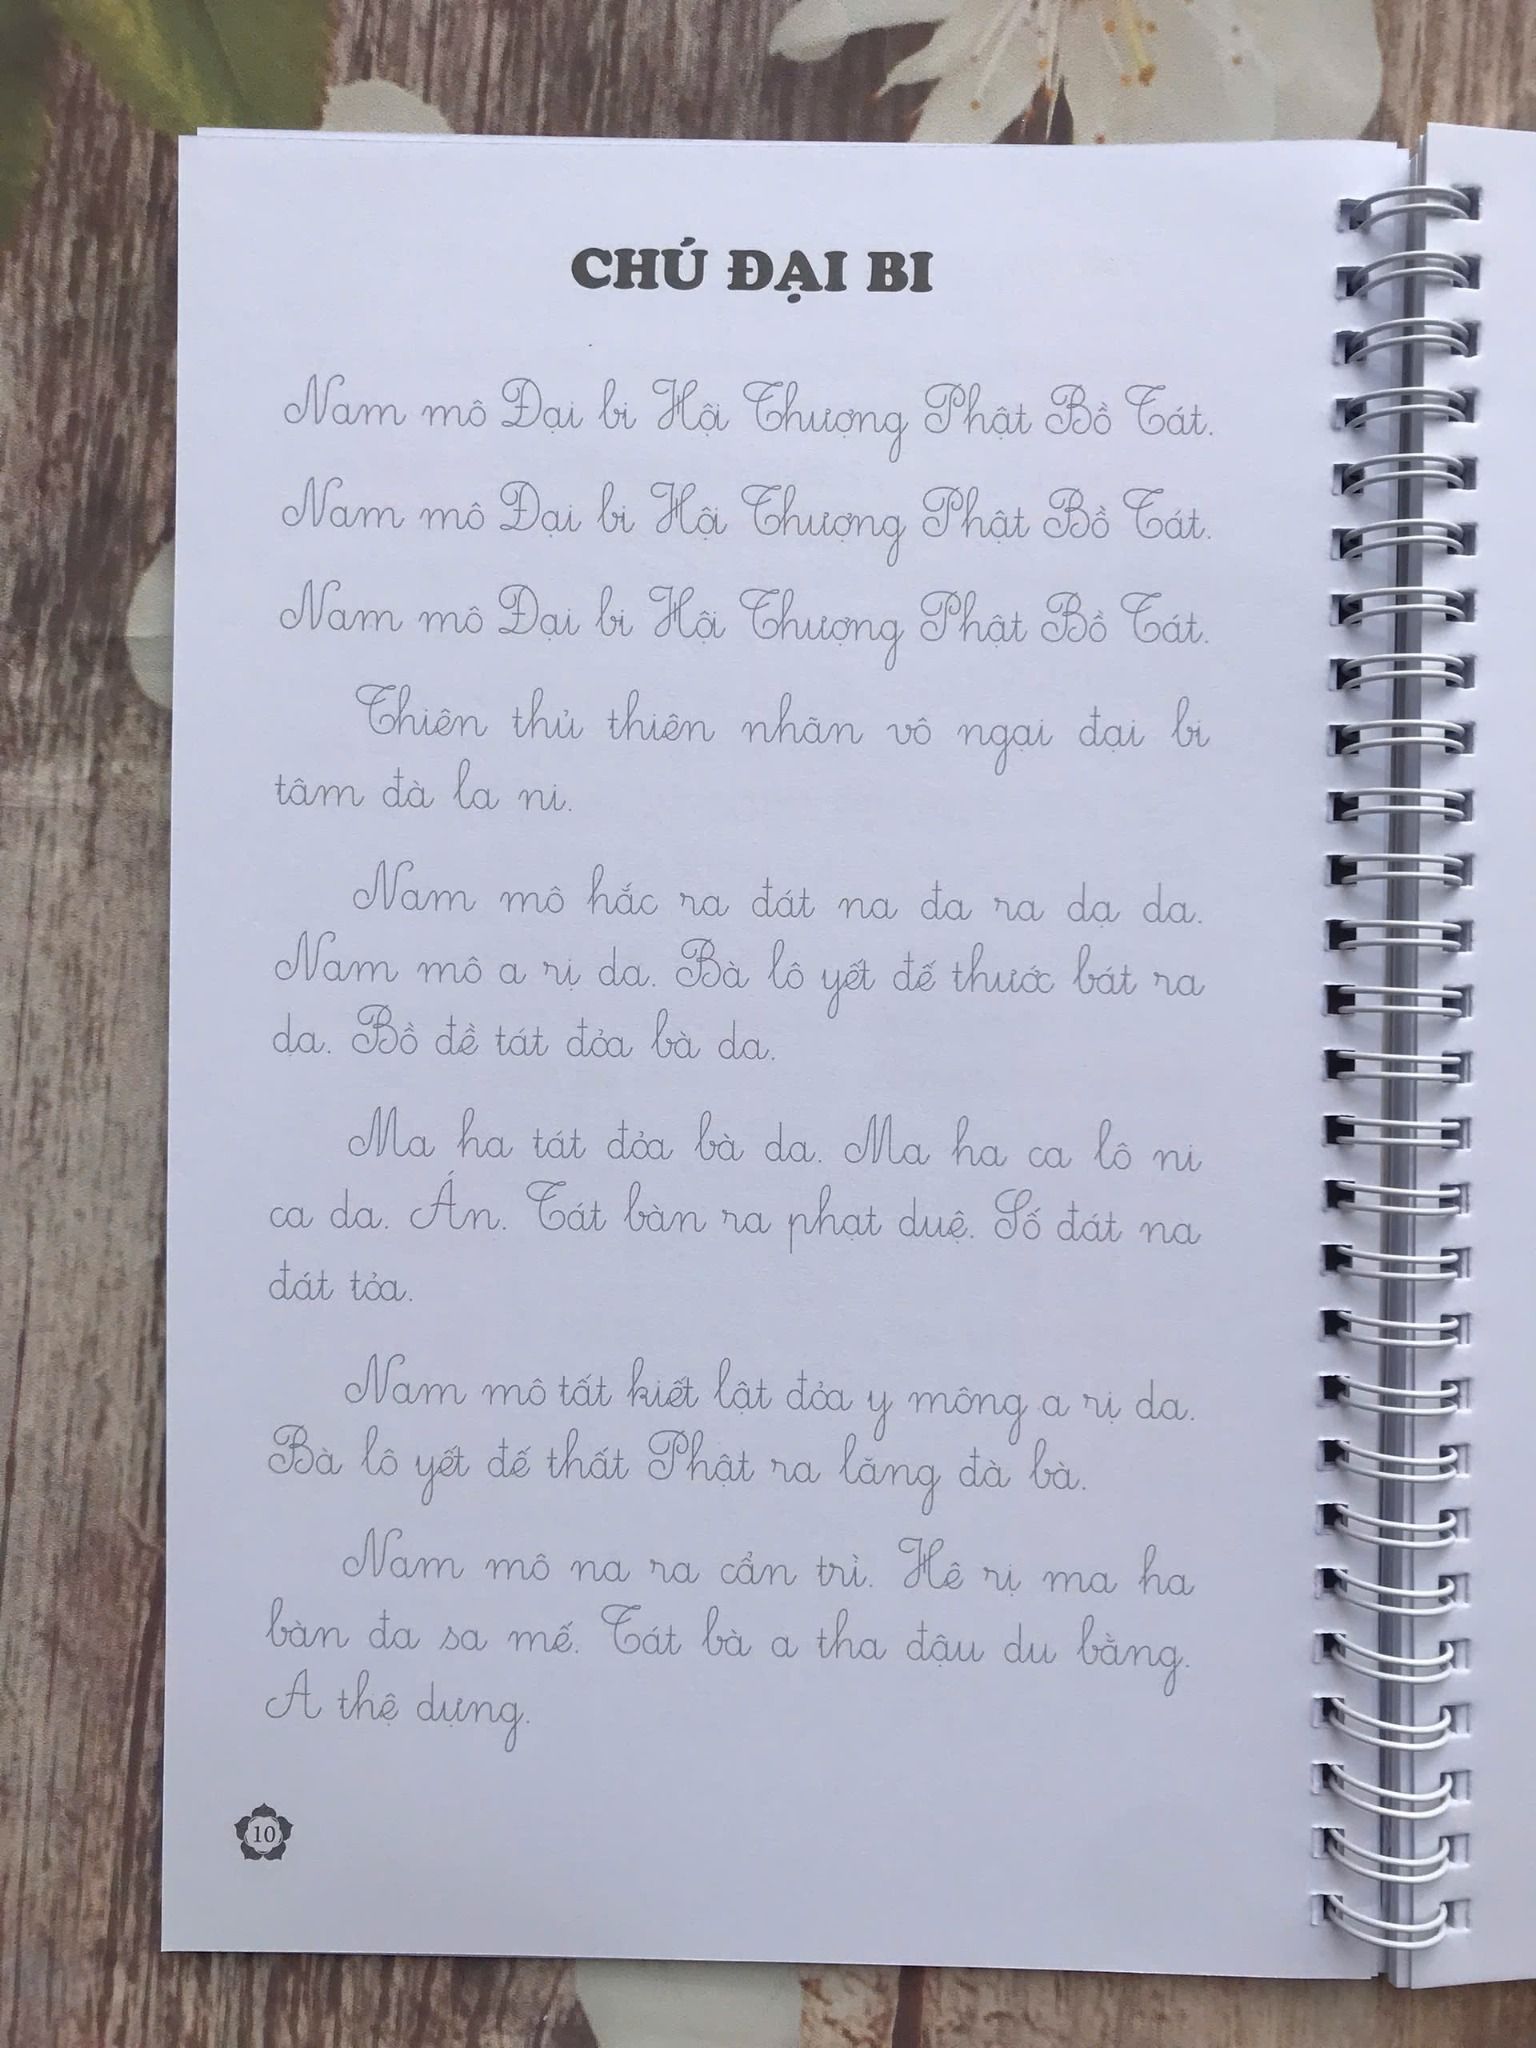 CHÚ ĐẠI BI
Nam mô Đại bi Hội Thượng Phật Bồ Tát.
Nam mô Đại bi Hội Thượng Phật Bồ Tát.
Nam mô Đại bi Hội Thượng Phật Bồ Tát.
Thiên thủ thiên nhãn vô ngại đại bi
tâm đà la ni.
Nam mô hắc ra đát na đa ra dạ da.
Nam mô a rị da. Bà lô yết đế thước bát ra
da. Bồ đề tát đỏa bà da.
Ma ha tát đỏa bà da. Ma ha ca lô ni
ca da. Án. Tát bàn ra phạt duệ. Số đát na
đát tỏa.
Nam mô tất kiết lật đỏa y mông a rị da.
Bà lô yết đế thất Phật ra lăng đà bà.
Nam mô na ra cẩn trì. Hê rị ma ha
bàn đa sa mế. Tát bà a tha đậu du bằng.
A thệ dựng.
10